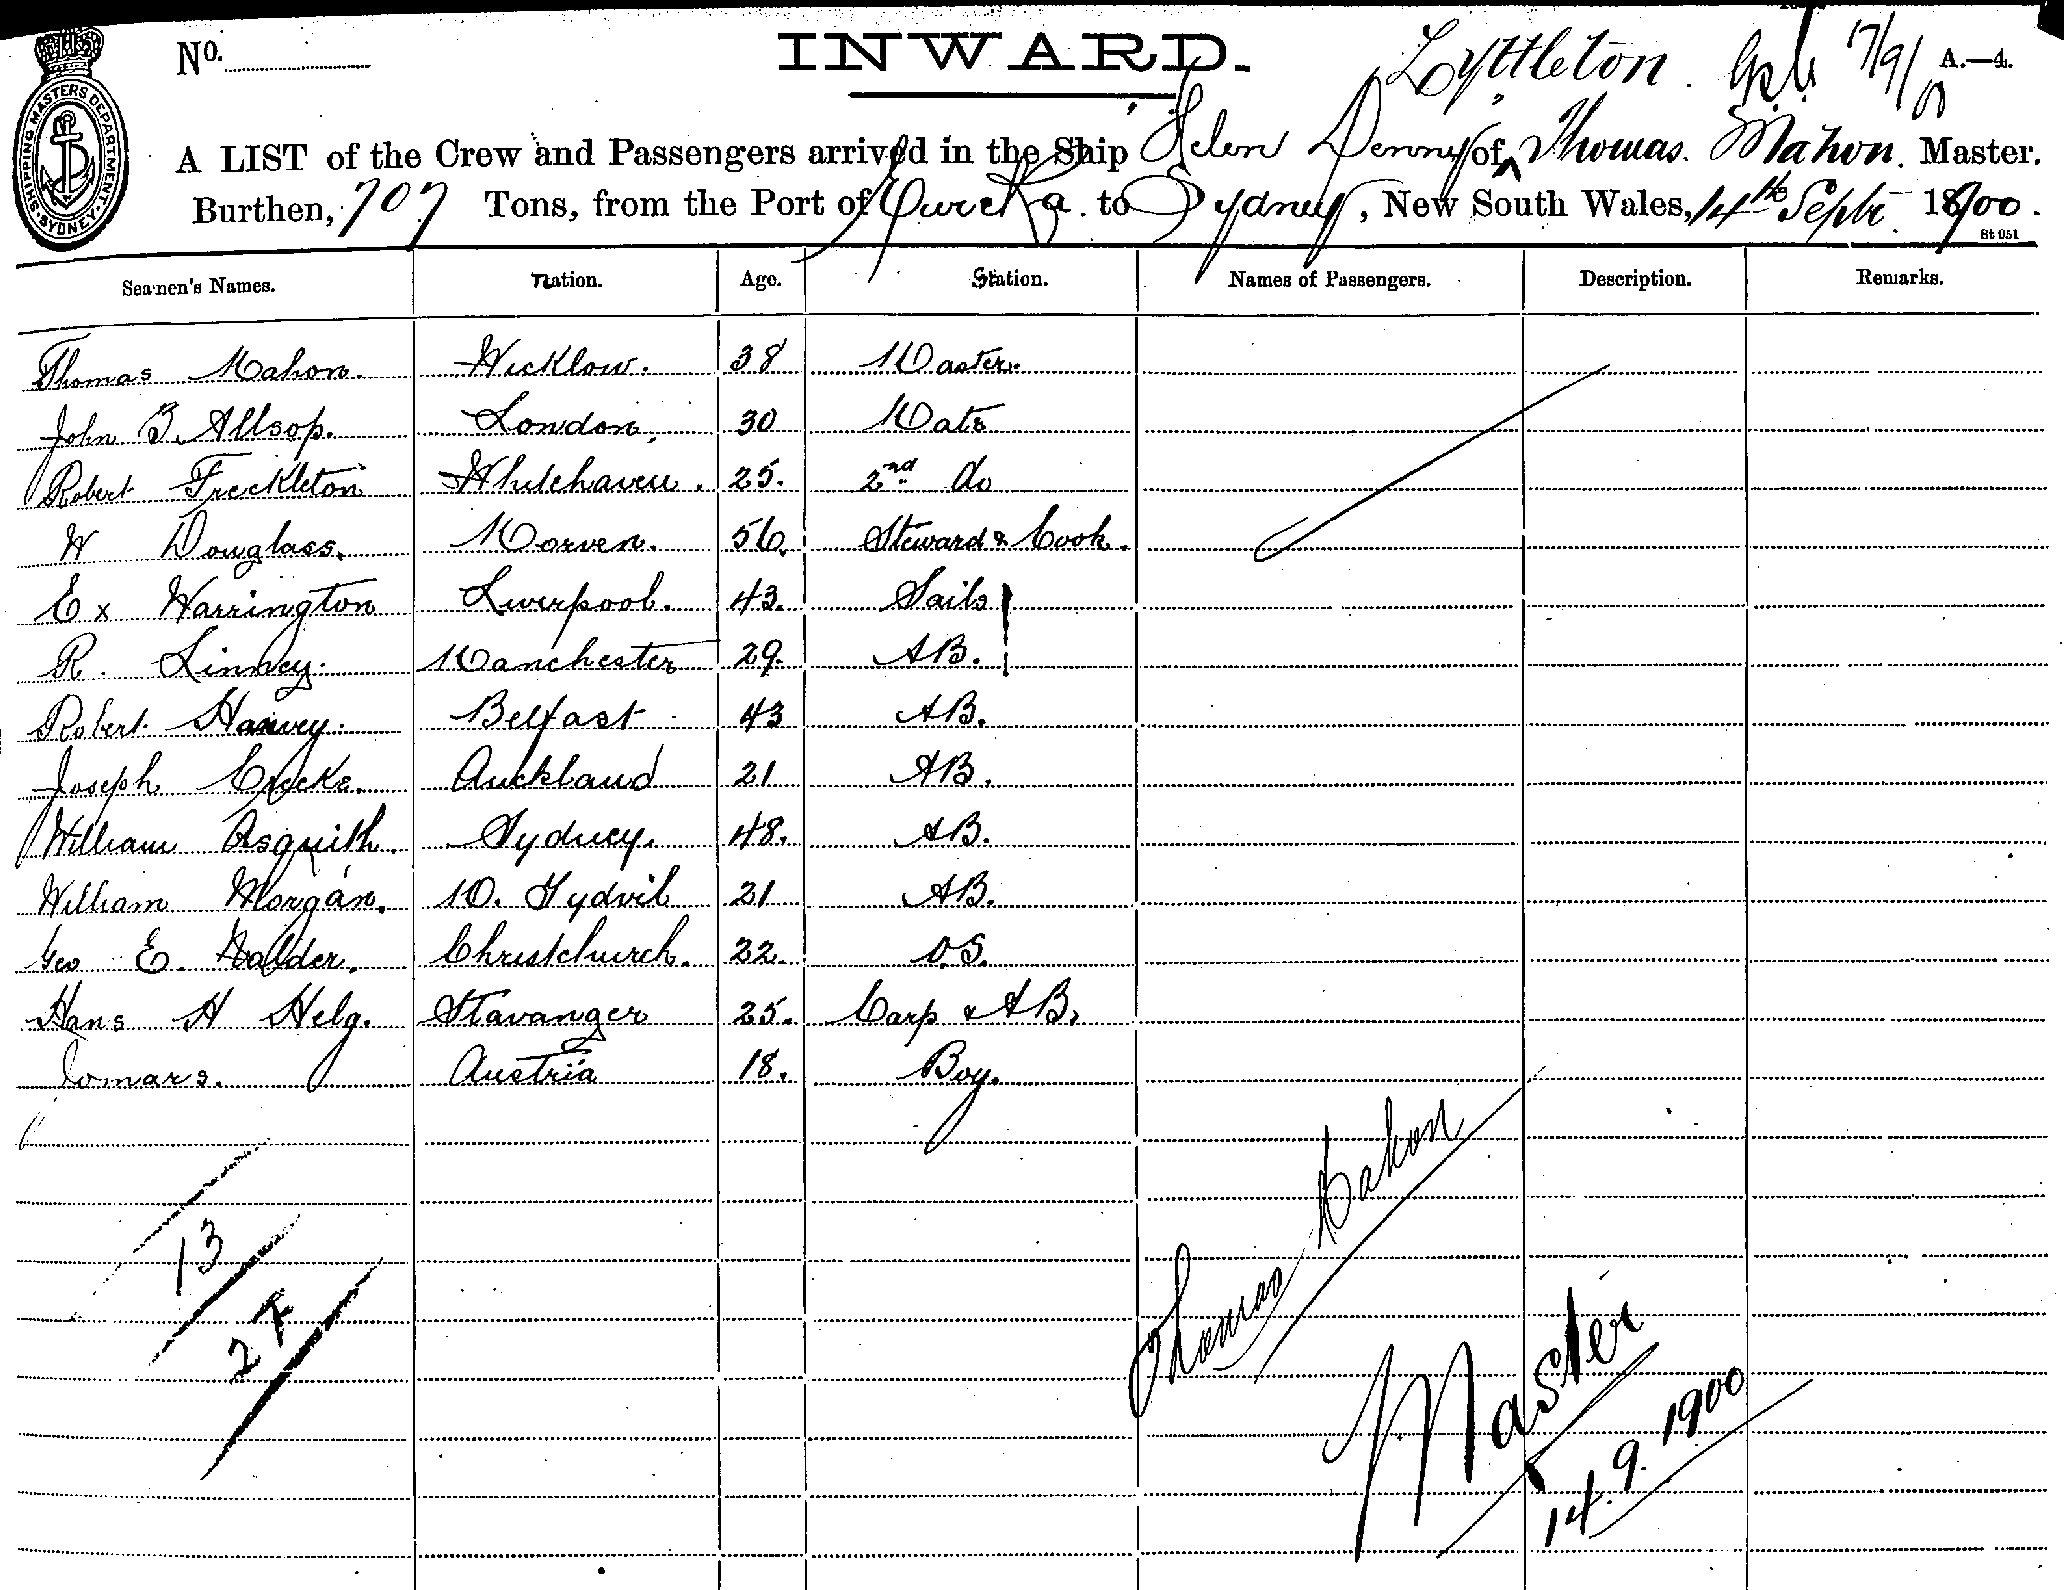 No.
INWARD.
Lyttleton. 17/9/00 A.—4.
SHIPPING MASTERS DEPARTMENT. SYDNEY.
A LIST of the Crew and Passengers arrived in the Ship Helen Denny of, Thomas. Mahon. Master.
Burthen, 707 Tons, from the Port of to Sydney, New South Wales, 14th Sept 1900.
St 051
Seamen's Names. Nation. Age. Station. Names of Passengers. Description. Remarks.
Thomas Mahon. Wicklow. 38 Master.
John Allsop. London. 30 Mate
Robert Freckleton Whitehaven. 25. 2nd do
W Douglass. Morven. 56. Steward & Cook.
Ex Warrington Liverpool. 43. Sails
R. Linney. Manchester 29. AB.
Robert Harvey. Belfast 43 AB.
Joseph Auckland 21 AB.
William Asquith. Sydney. 48. AB.
William Morgan. M. Tydvil 21 AB.
Geo E. Christchurch. 22. O.S.
Hans H Helg. Stavanger 25. Carp & AB.
Austria 18. Boy.
13
27
Thomas Mahon
Master
14.9.1900